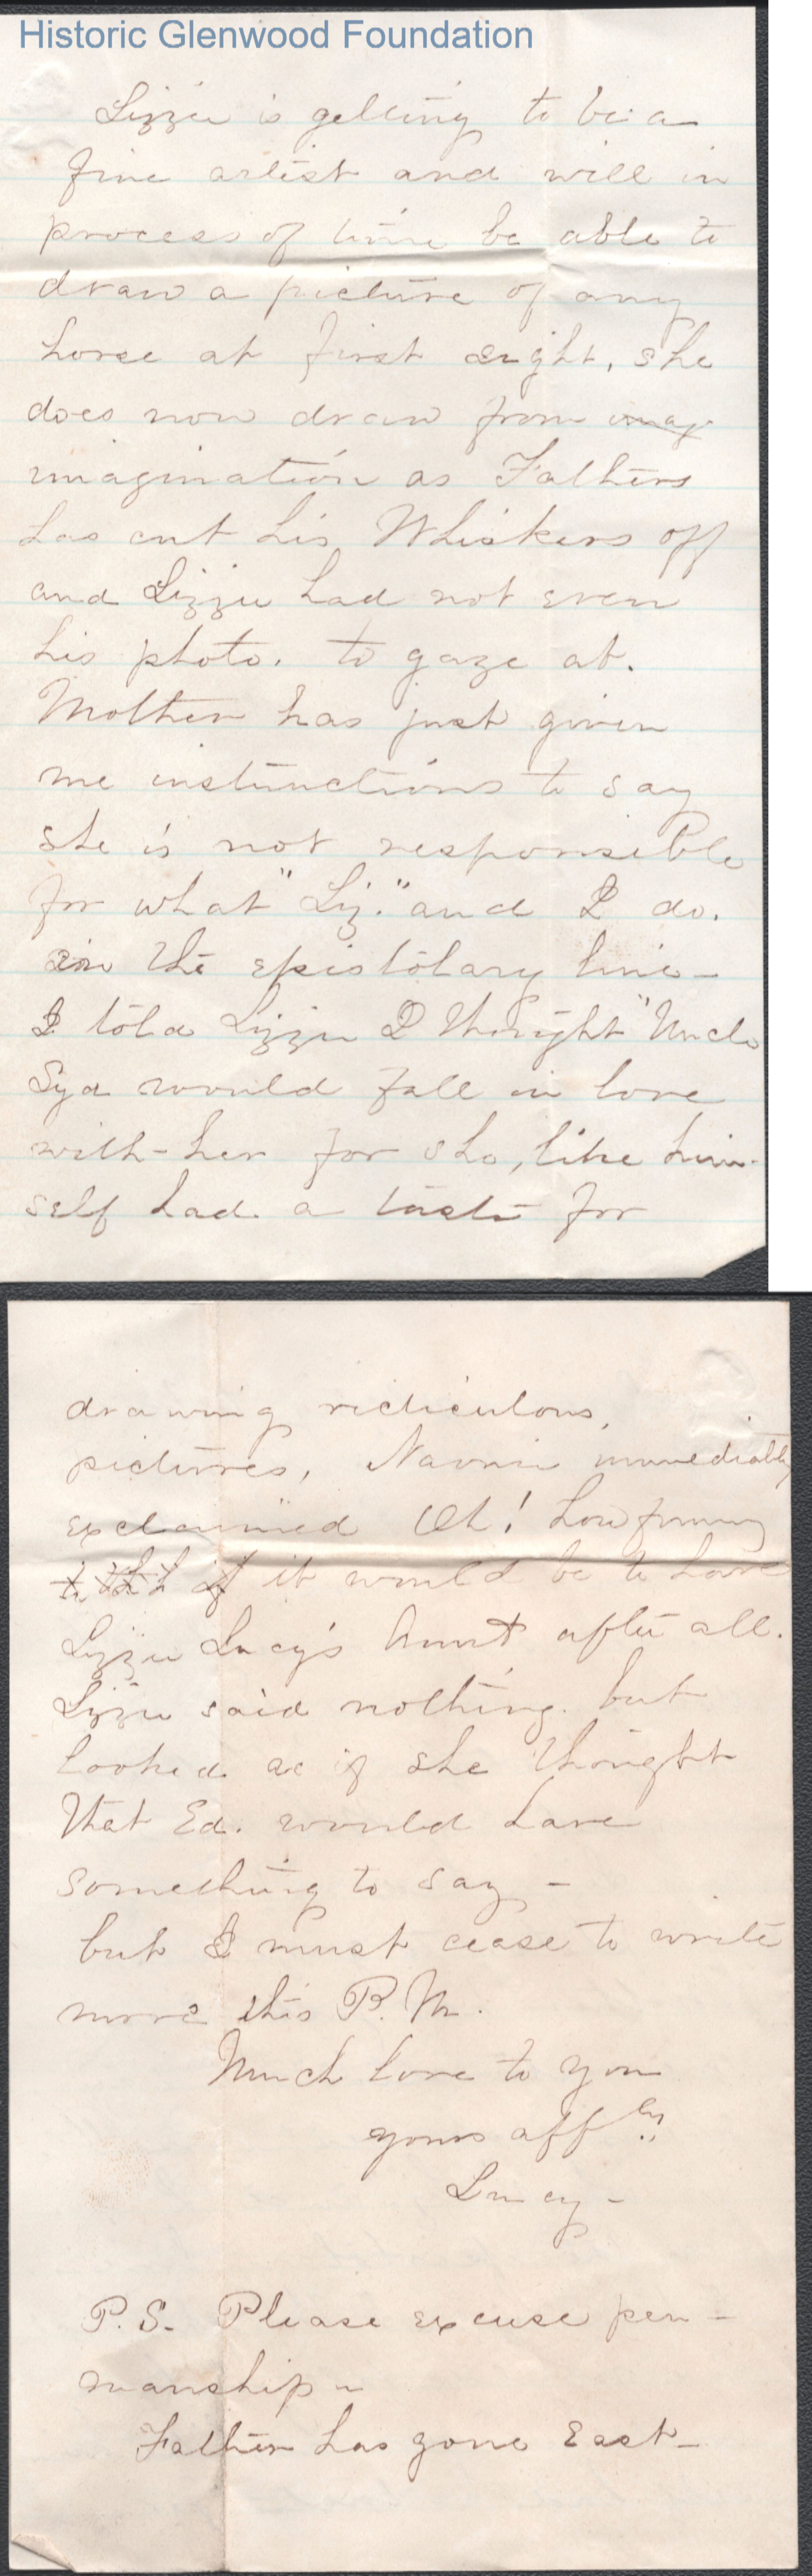 Historic Glenwood Foundation
Lizzie is getting to be a
fine artist and will in
process of time be able to
draw a picture of any
horse at first sight, she
does now draw from imag
imagination as Fathers
has cut his Whiskers off
and Lizzie had not even
his photo. to gaze at.
Mother has just given
me instructions to say
she is not responsible
for what "Liz." and I do.
in the epistolary line -
I told Lizzie I thought "Uncle
Syd would fall in love
with-her for she, like him-
self had a taste for
drawing ridiculous,
pictures, Naomi immediately
exclaimed Oh! how funny
if it would be to have
Lizzie Lucy's Aunt after all.
Lizzie said nothing. but
looked as if she thought
that Ed. would have
something to say -
but I must cease to write
more this P.M.
Much love to you
yours aff ly
Lucy -
P.S. Please excuse pen -
manship -
Father has gone East -